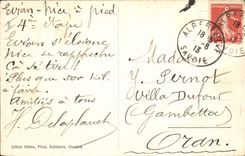 Evian-Nice à pied
4e étape
Evian s'éloigne
Nice se rapproche
Ça se tire !
Plus que 500 kil.
à faire.
Amitiés à tous
J. Delaplauch
ALBERTVILLE
18
8
13
SAVOIE
Madame
J. Pernot
Villa Dufour
(Gambetta)
Oran.
Jullien frères, Phot. Editeurs, Genève